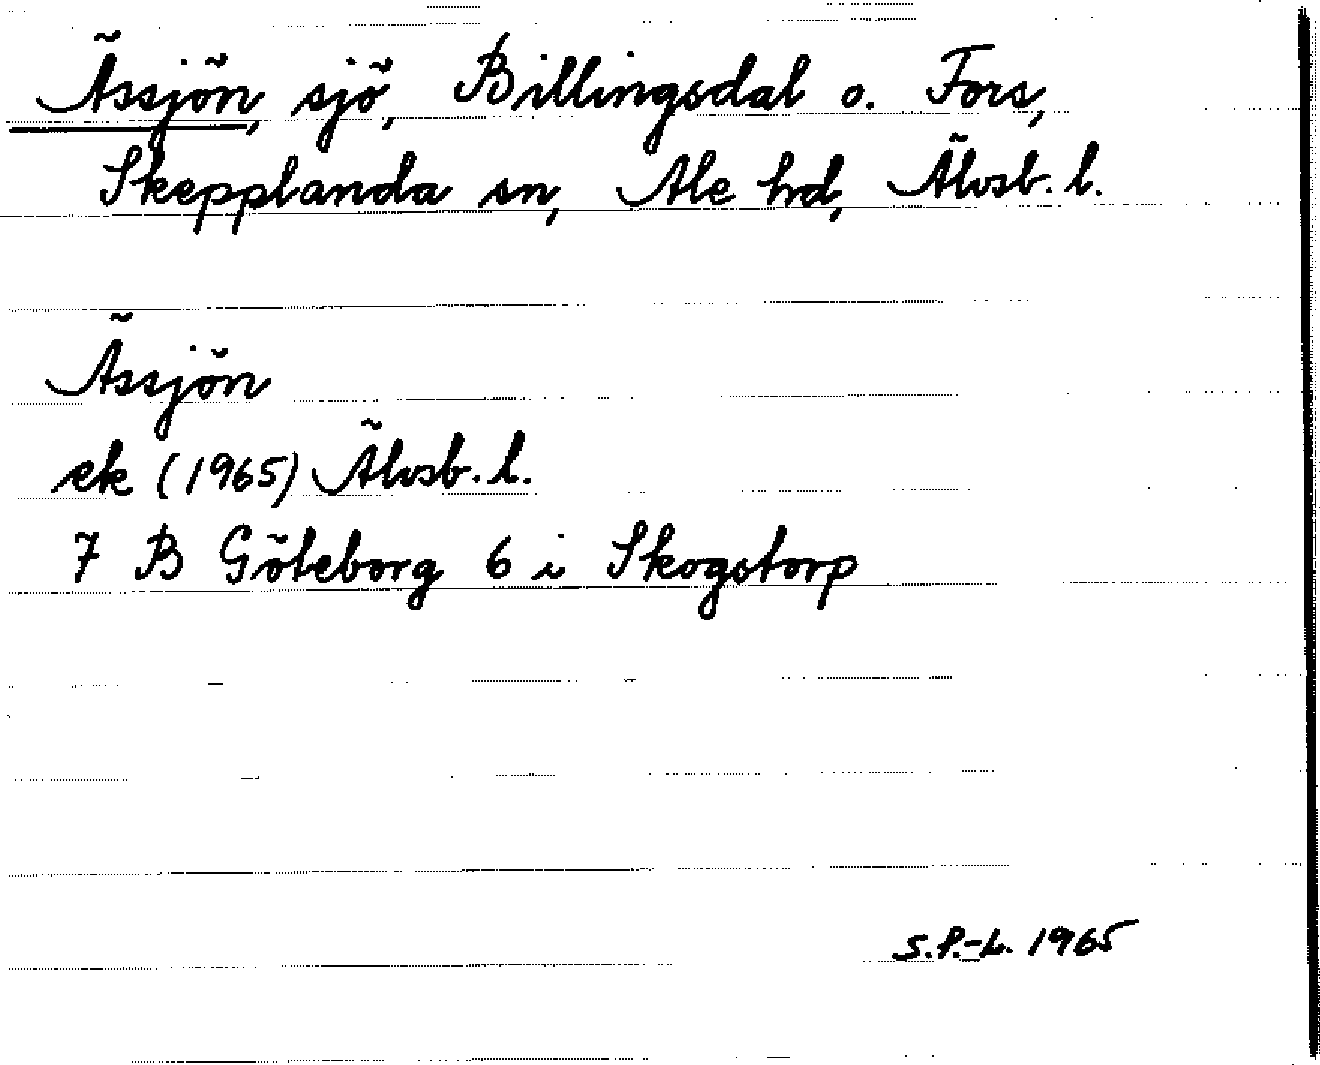 Ässjön, sjö, Billingsdal o. Fors,
Skepplanda sn, Ale hd, Älvsb. l.
Ässjön
ek (1965) Älvsb. l.
7 B Göteborg 6 i Skogstorp
S.P.-L. 1965